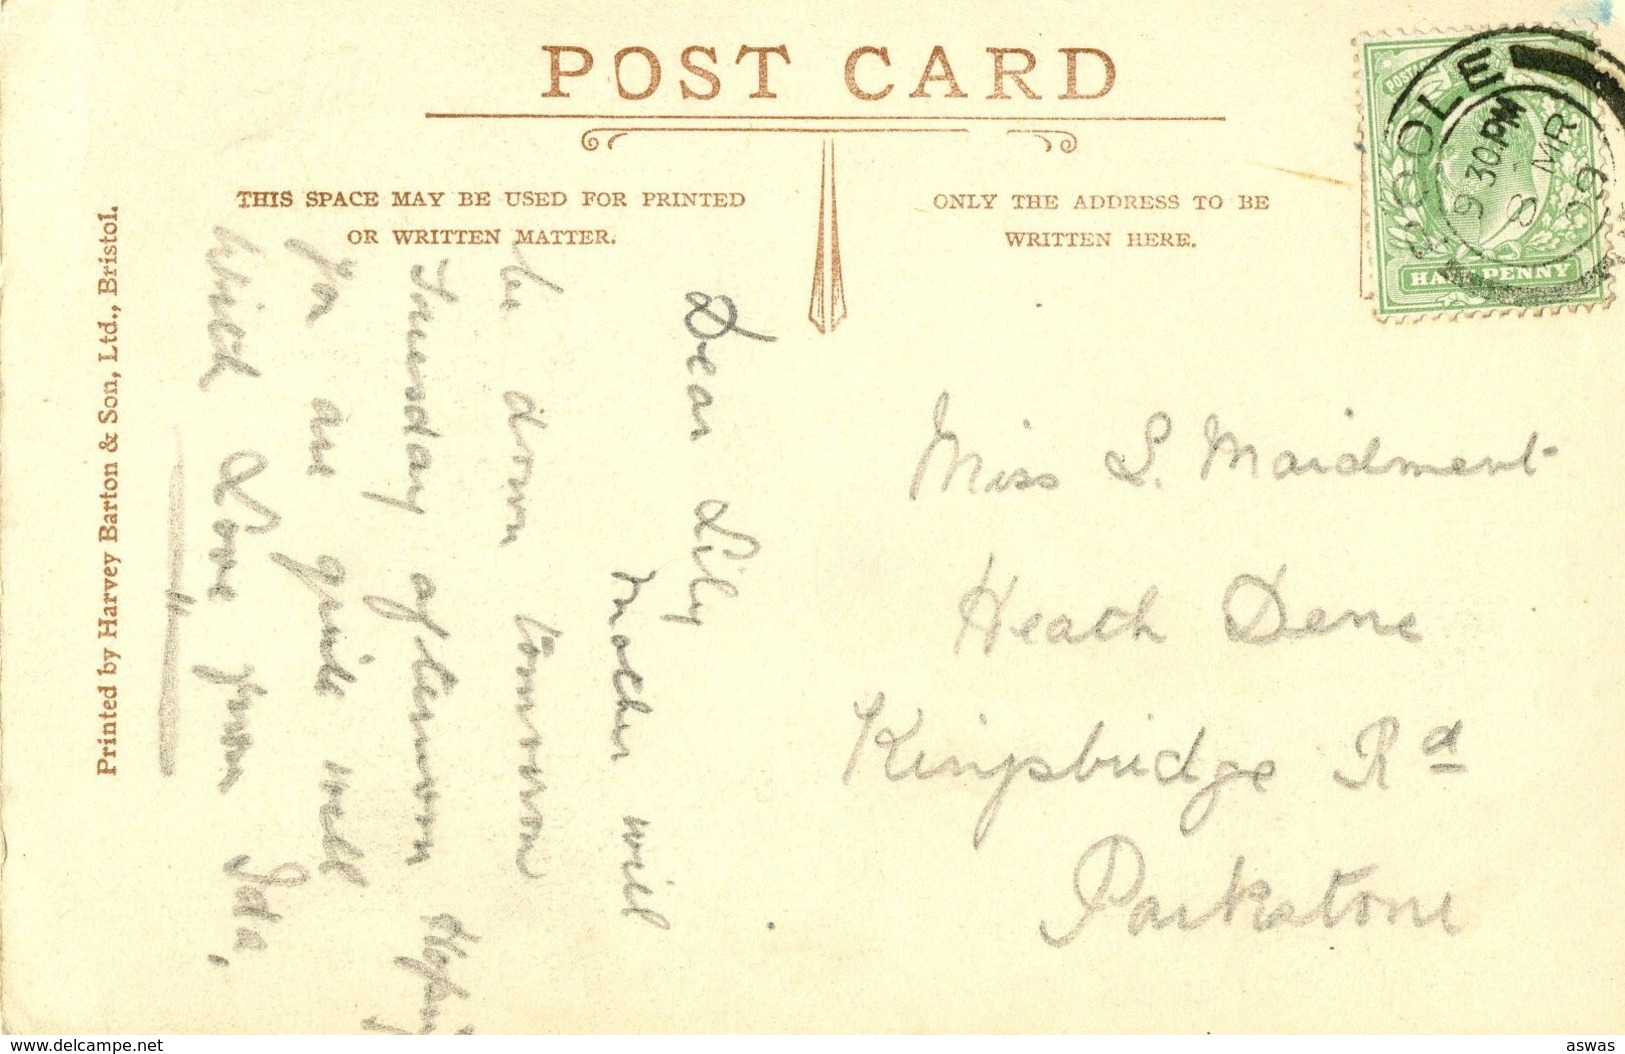 POST CARD
THIS SPACE MAY BE USED FOR PRINTED
OR WRITTEN MATTER.
ONLY THE ADDRESS TO BE
WRITTEN HERE.
POOLE
9 30 PM
8 MR
09
POSTAGE
HALFPENNY
Printed by Harvey Barton & Son, Ltd., Bristol.
Dear Lily
Mother will
be down tomorrow
Tuesday afternoon Hoping
you are quite well
With Love from Ida,
Miss L. Maidment
Heath Dene
Kingsbridge Rd
Parkstone
www.delcampe.net
aswas